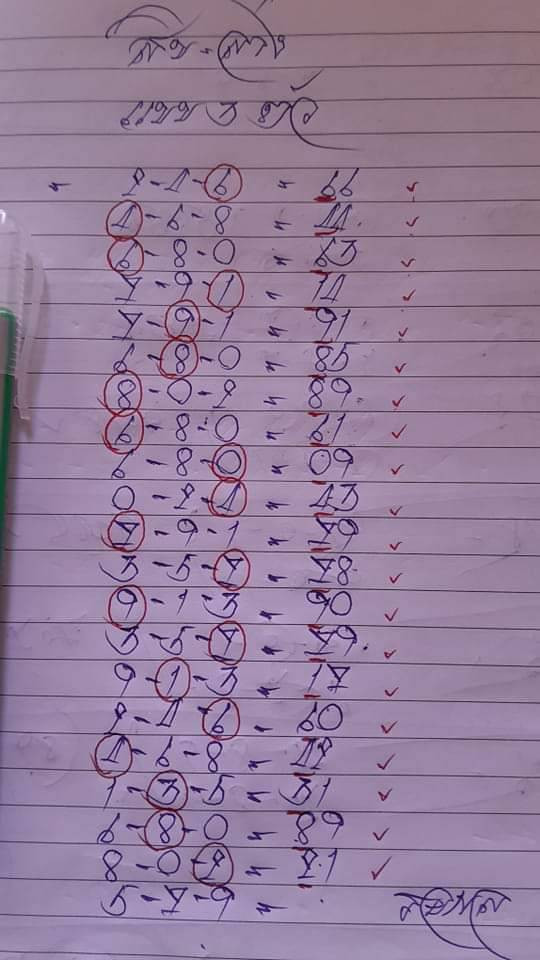 สิบ - ล่าง
แบบ 3 ตัว
" 2-4-6 = 66 ✓
4-6-8 = 44 ✓
6-8-0 = 63 ✓
7-9-1 = 14 ✓
7-9-1 = 91 ✓
6-8-0 = 85 ✓
8-0-2 = 89 ✓
6-8-0 = 61 ✓
6-8-0 = 09 ✓
0-2-4 = 43 ✓
7-9-1 = 79 ✓
3-5-7 = 78 ✓
9-1-3 = 90 ✓
3-5-7 = 79 ✓
9-1-3 = 17 ✓
2-4-6 = 60 ✓
4-6-8 = 42 ✓
1-3-5 = 31 ✓
6-8-0 = 89 ✓
8-0-2 = 21 ✓
5-7-9 =